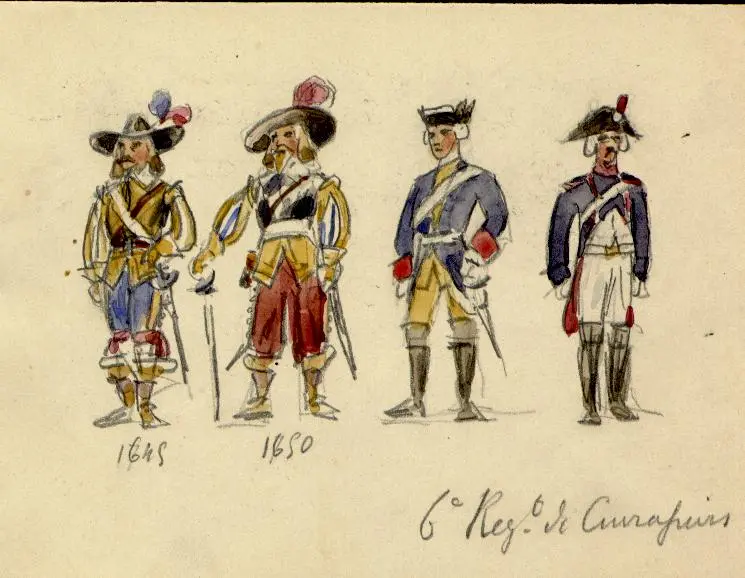 1645
1650
6e Regt. de Cuirassiers